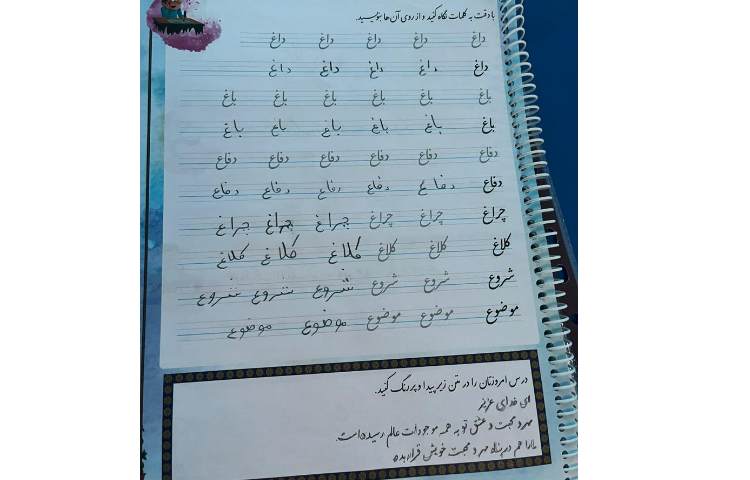 با دقت به کلمات نگاه کنید و از روی آن ها بنویسید.
داغ داغ داغ داغ داغ
داغ داغ داغ داغ داغ
باغ باغ باغ باغ باغ باغ
باغ باغ باغ باغ باغ باغ
دفاع دفاع دفاع دفاع دفاع دفاع
دفاع دفاع دفاع دفاع دفاع دفاع
چراغ چراغ چراغ چراغ چراغ چراغ
کلاغ کلاغ کلاغ کلاغ کلاغ کلاغ
شروع شروع شروع شروع شروع شروع
موضوع موضوع موضوع موضوع موضوع
درس امروزتان را در متن زیر پیدا و پررنگ کنید.
ای خدای عزیز
مهر و محبت و عشق تو به همه موجودات عالم رسیده است.
مارا هم در پناه مهر و محبت خویش قرار بده